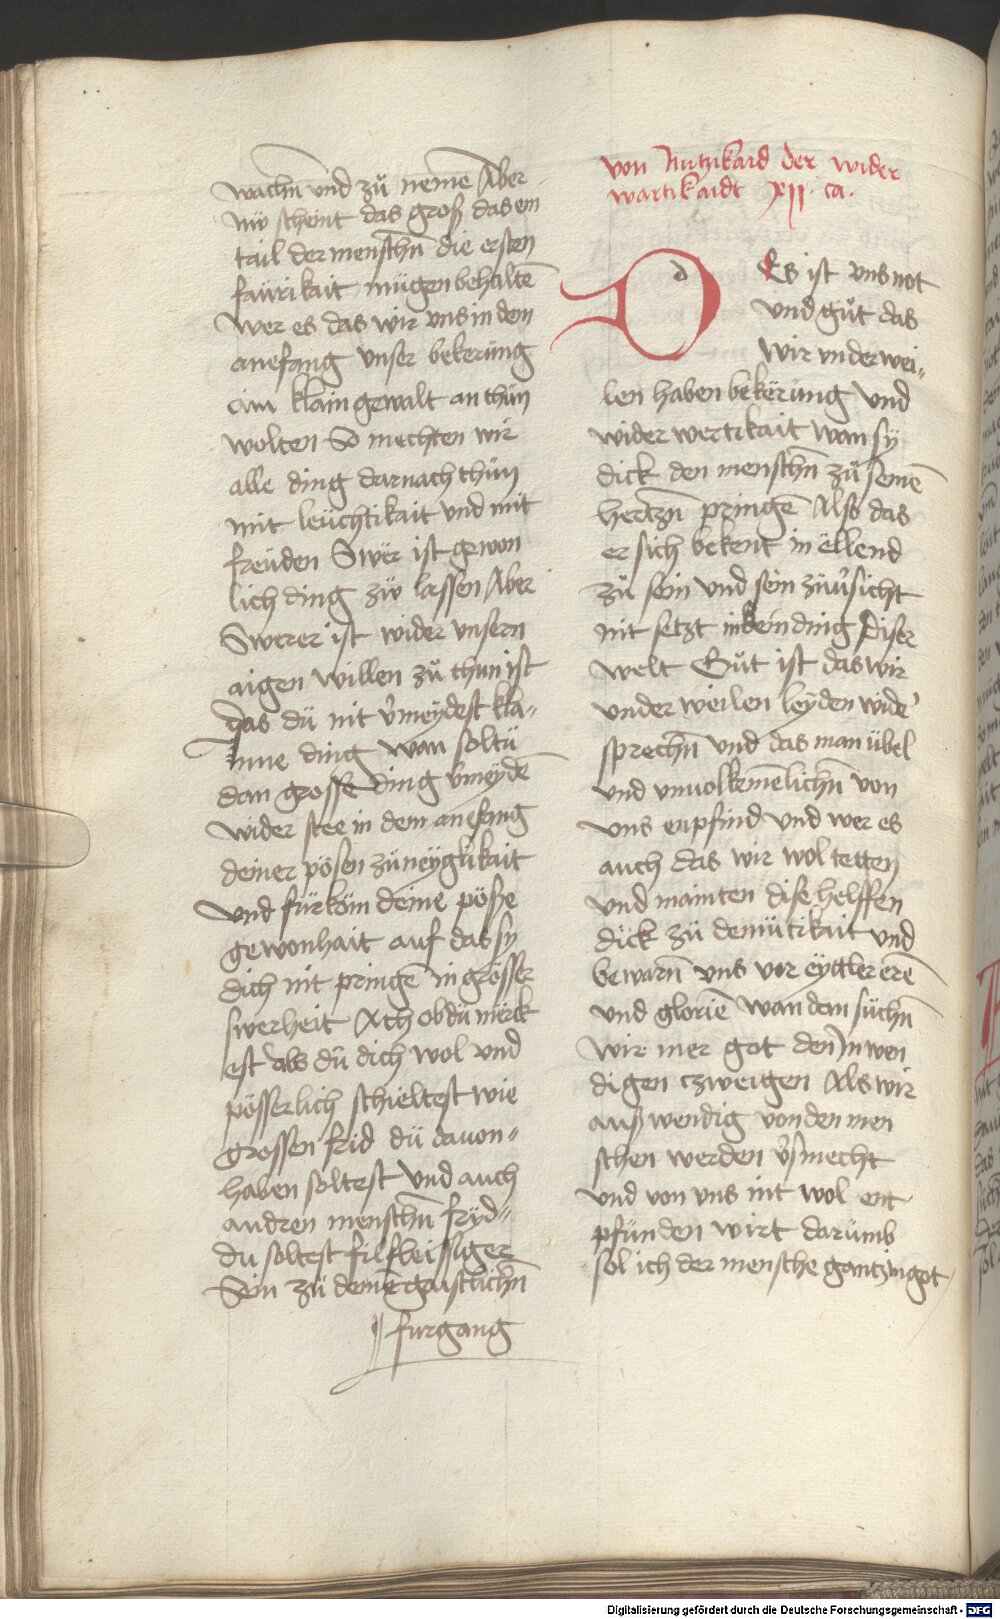 wachn̄ vnd zů nemē Aber
nw̋ scheint das groß das ein
tail der menschn̄ die ersten
faürikait mügen behaltē
wer es das wir vns in dem
anefang vnser bekerüng
ain klain gewalt an thün
wolten So mechten wir
alle ding darnach thün
mit leüchtikait vnd mit
freüden Swër ist gewon
lich ding zw̋ lassen Aber
Swerer ist wider vnsern
aigen willen zů thun ist
das dü nit v̓meydest kla„
inne ding wan soltü
dan grosse ding v̓meydē
wider stee in dem anefang
deiner pösen züneÿglikait
vnd fürköm deine pöße
gewonhait auf das sy
dich nit pringē in grösser
swerheit Ach ob dü mërck
est als dü dich wol vnd
pösserlich schieltest wie
grossen frid dü dauon„
haben soltest vnd auch
andren menschn̄ fryd„
du soltest fil fleissiger
Sein zü deinē gaistlichn̄
furgang
von Nutzikaid der wider
wartikaidt xij. ca.
d
Es ist vns not
vnd gůt das
wir vnder wei„
len haben bekërüng vnd
wider wertikait wan sÿ
dick den menschn̄ zů seinē
hertzn̄ pringē Also das
er sich bekent in ëllend
zů sein vnd sein züu̓sicht
nit setzt in kein ding diser
welt Gůt ist das wir
vnder weilen leyden wide᷒
sprechn̄ vnd das man übel
vnd vnuolkemēlichn̄ von
vns enpfind vnd wer es
auch das wir wol tetten
vnd mainten dise helffen
dück zü demütikait vnd
bewarn̄ vns vor eÿttler erē
vnd gloriē wan dan süchn̄
wir mer got den Inwen
digen czweigen Als wir
außwendig von den men
schen werden v̓smecht
vnd von vns nit wol ent
pfünden wirt darümb
sol ich der mensche gantz in got
Digitalisierung gefördert durch die Deutsche Forschungsgemeinschaft - DFG